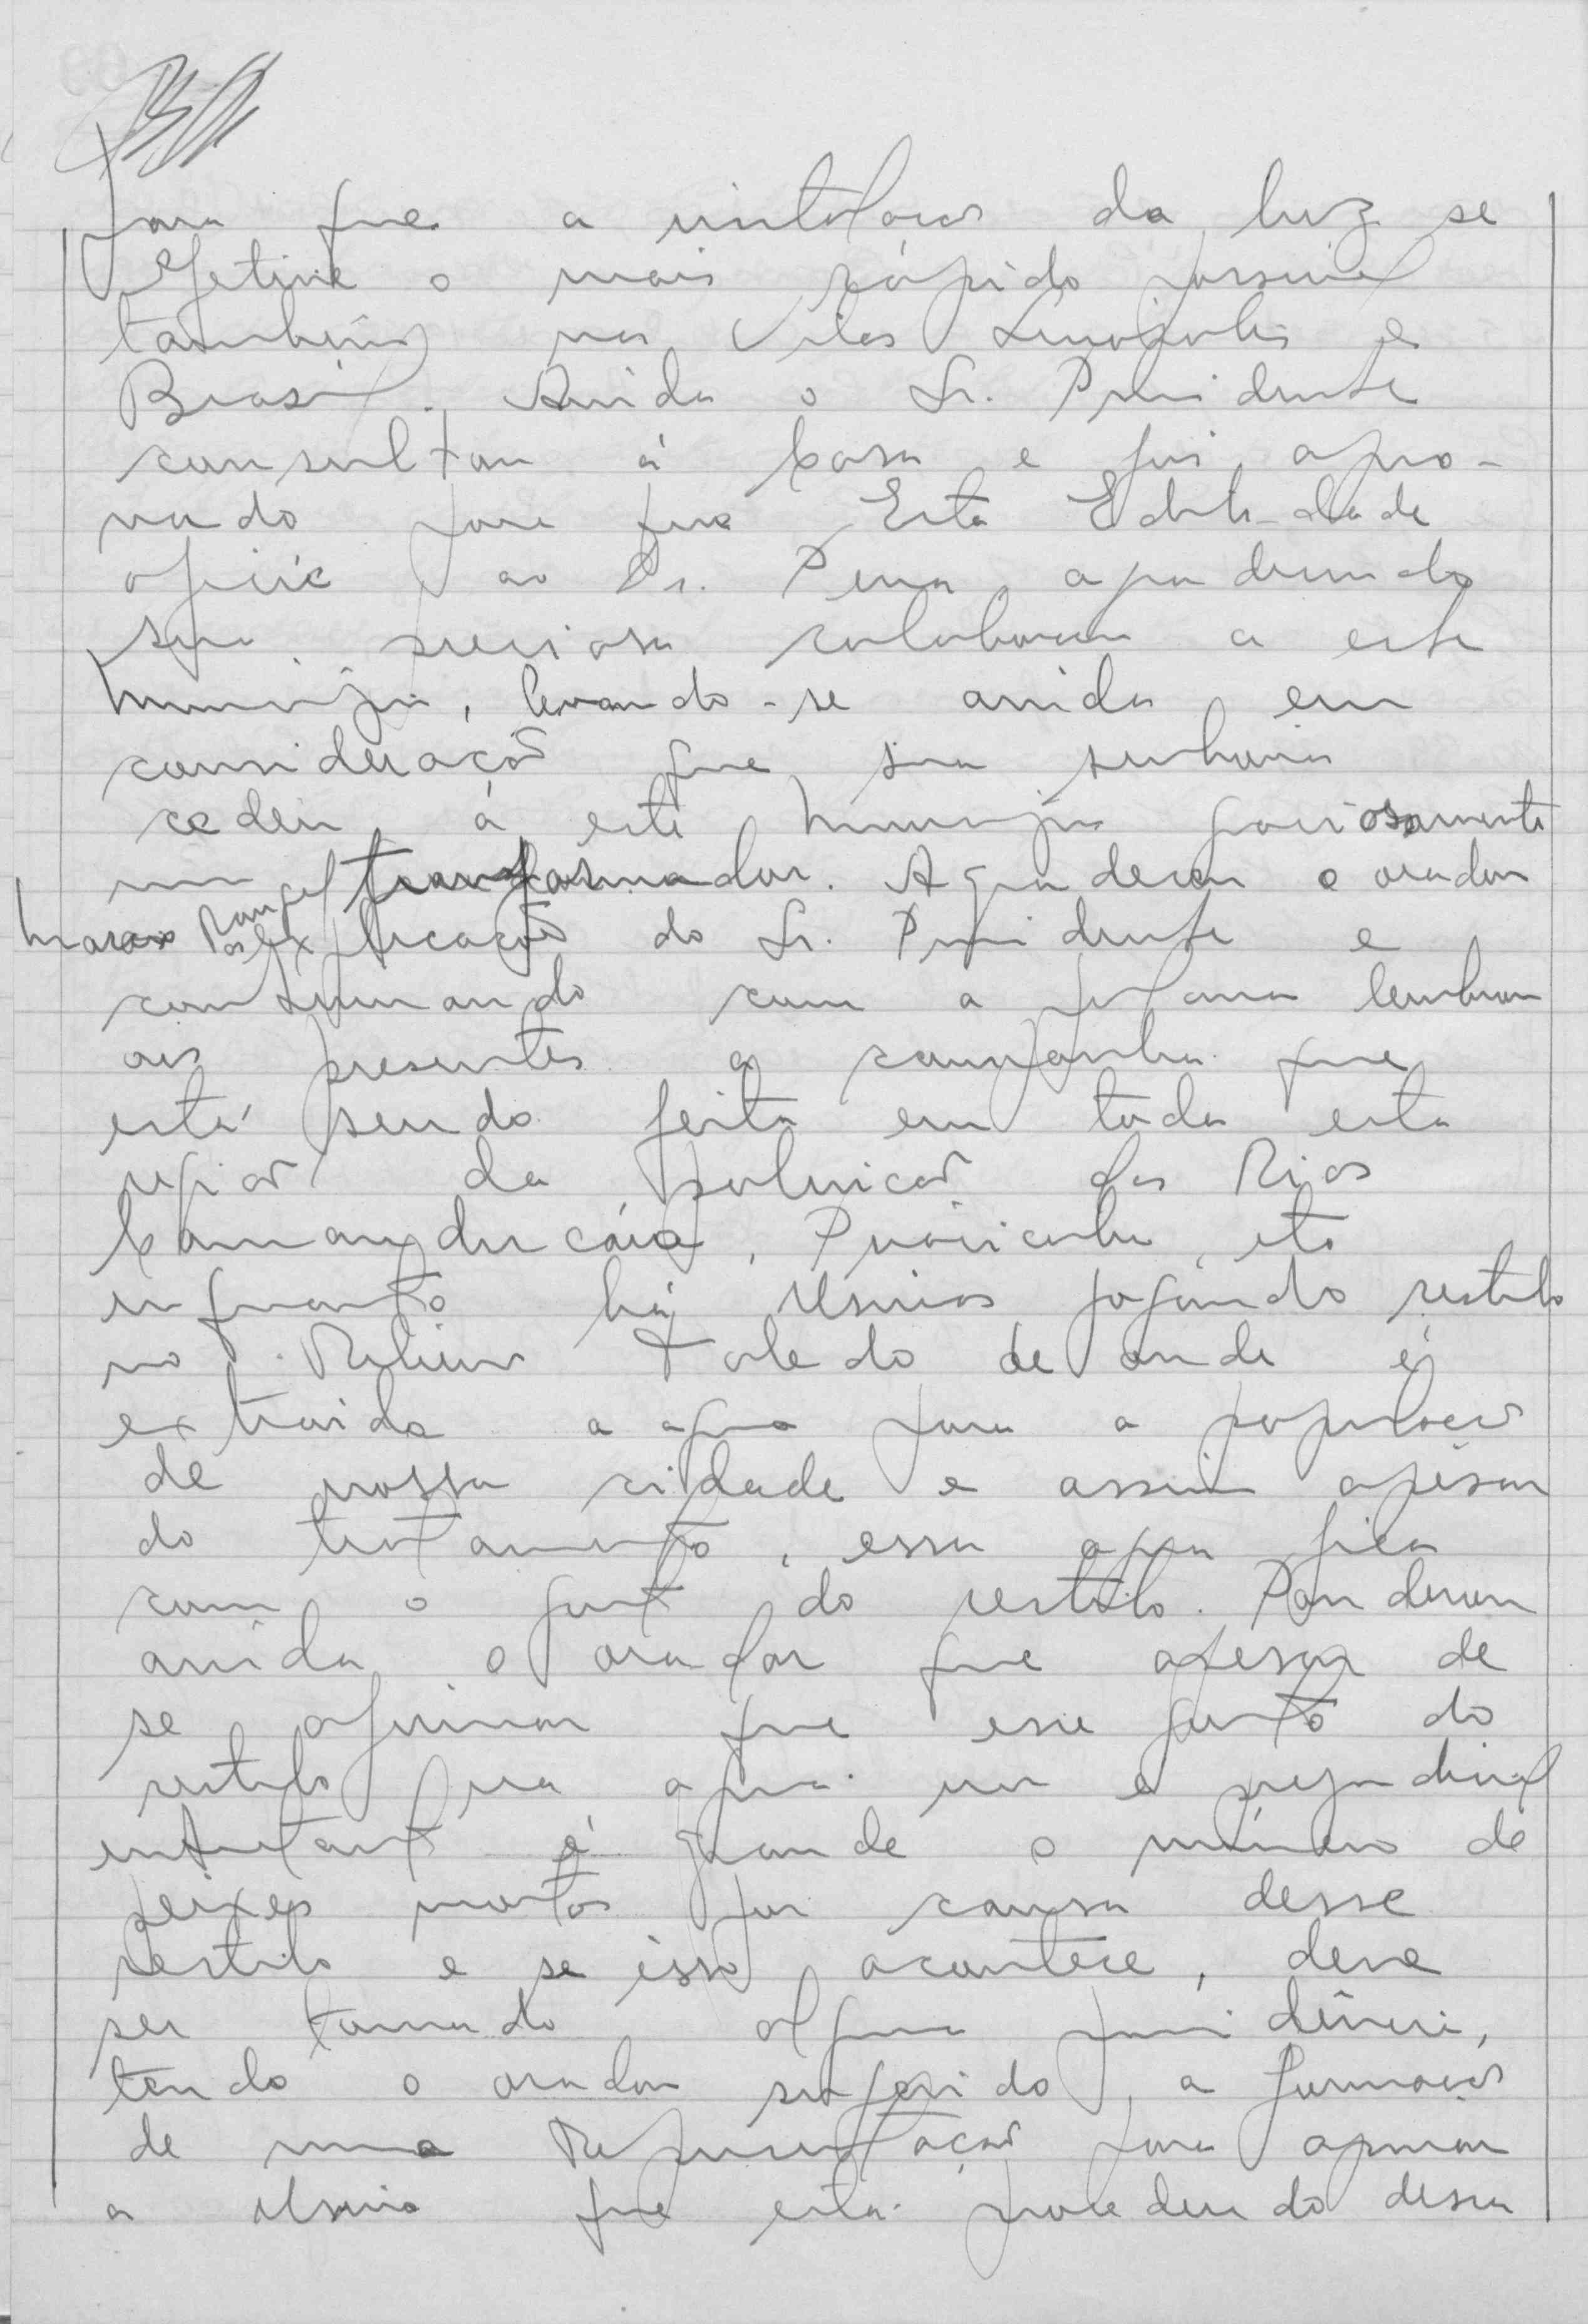 para que a instalação da luz se
efetive o mais rápido possivel
também nas Vilas Linopolis e
Brasil. Ainda o Sr. Presidente
consultou á Casa e foi apro-
vado para que Esta Edili-dade
oficie ao Dr. Pena, agradecendo
sua preciosa colaboração a este
Municipio, levando-se ainda em
consideração que sua senhoria
cedeu á este Municipio graciosamente
um transformador. Agradeceu o orador
Marcos Rangel as explicações do Sr. Presidente e
continuando com a palavra lembrou
aos presentes a campanha que
está sendo feita em toda esta
região da poluição dos Rios
Camanducáia, Piracicaba, etc
enquanto há Usinas jogando restilo
no Ribeirão Toledo de onde é
extraida a agua para a população
de nossa cidade e assim apesar
do tratamento, essa agua fica
com o gosto do restilo. Ponderou
ainda o orador que apesar de
se afirmar que esse gosto do
restilo na agua não é prejudicial
entretanto é grande o número de
peixes mortos por causa desse
restilo e se isso acontece, deve
ser tomado alguma providência,
tendo o orador sugerido, a formação
de uma Representação para apurar
a Usina que está procedendo dessa